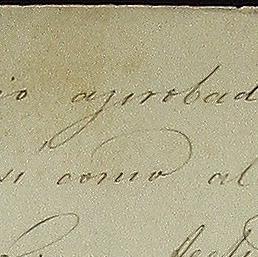 io aprobad
si como al